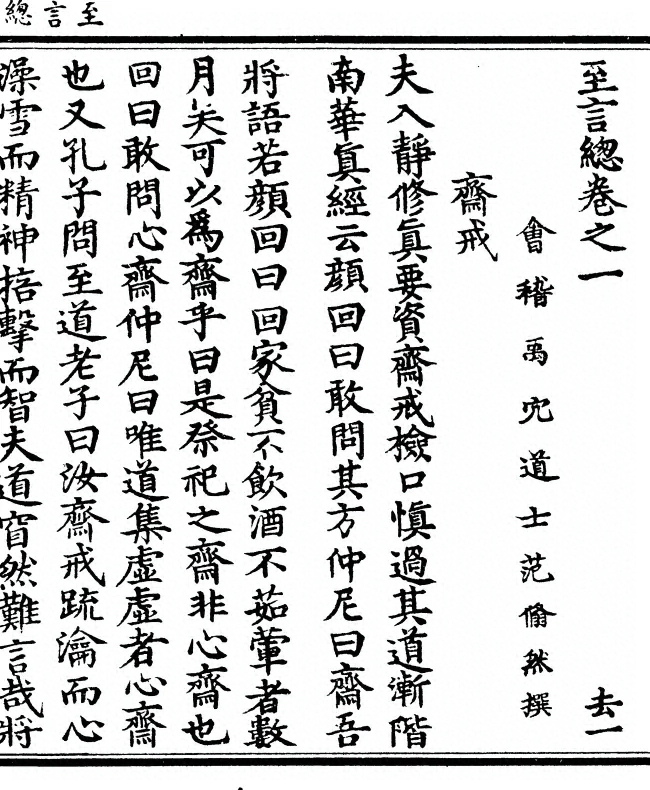 至言總
至言總卷之一　去一
會稽禹穴道士范翛然撰
齋戒
夫入靜修眞要資齋戒檢口愼過其道漸階
南華眞經云顔回曰敢問其方仲尼曰齋吾
將語若顔回曰回家貧不飮酒不茹葷者數
月矣可以爲齋乎曰是祭祀之齋非心齋也
回曰敢問心齋仲尼曰唯道集虛虛者心齋
也又孔子問至道老子曰汝齋戒疏瀹而心
澡雪而精神掊擊而智夫道窅然難言哉將